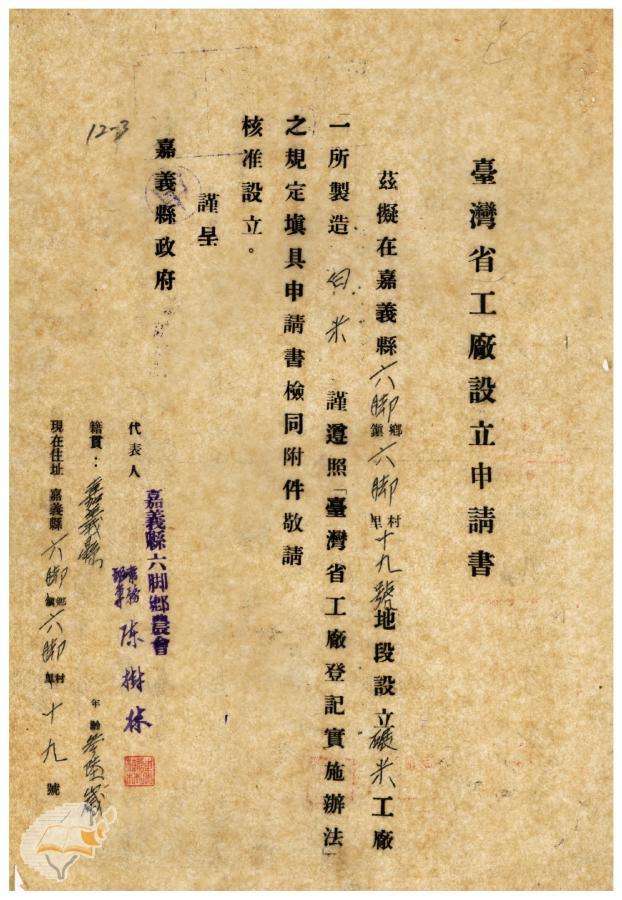 臺灣省工廠設立申請書
茲擬在嘉義縣六脚鄉鎮六脚村里十九號地段設立碾米工廠
一所製造白米謹遵照「臺灣省工廠登記實施辦法」
之規定填具申請書檢同附件敬請
核准設立。
謹呈
嘉義縣政府
12-3
代表人
嘉義縣六脚鄉農會
常務
陳樹林
籍貫：嘉義縣
年齡參陸歲
現在住址嘉義縣六脚鄉鎮六脚村里十九號